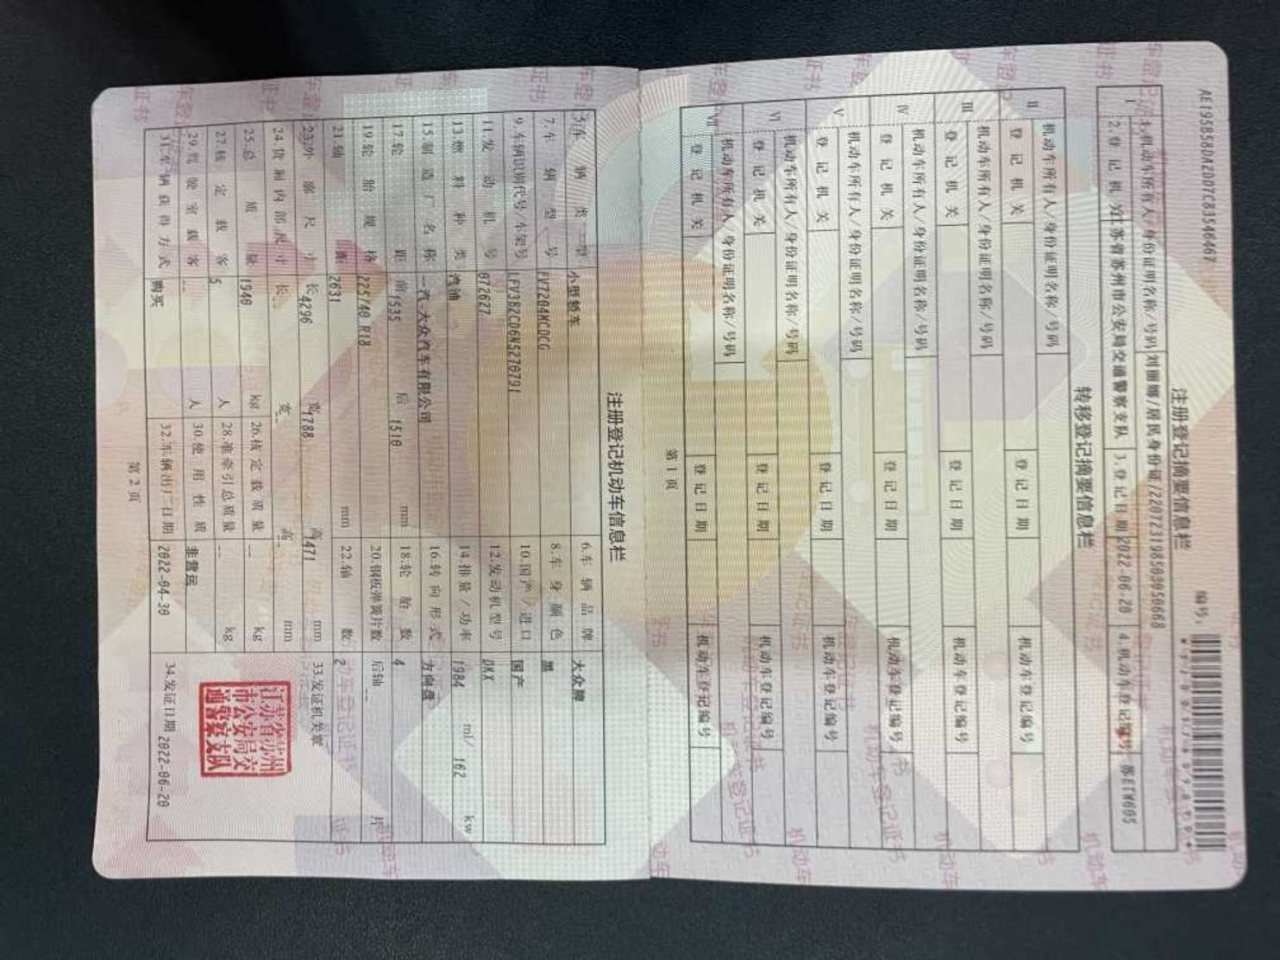 AE1938580A2D07C83546467
编号:
注册登记摘要信息栏
I 1.机动车所有人/身份证明名称/号码 刘丽娜/居民身份证/220723198508050668
2.登记机关 江苏省苏州市公安局交通警察支队 3.登记日期 2022-06-20 4.机动车登记编号 苏ETW605
转移登记摘要信息栏
II 机动车所有人/身份证明名称/号码
登记机关 登记日期 机动车登记编号
III 机动车所有人/身份证明名称/号码
登记机关 登记日期 机动车登记编号
IV 机动车所有人/身份证明名称/号码
登记机关 登记日期 机动车登记编号
V 机动车所有人/身份证明名称/号码
登记机关 登记日期 机动车登记编号
VI 机动车所有人/身份证明名称/号码
登记机关 登记日期 机动车登记编号
VII 机动车所有人/身份证明名称/号码
登记机关 登记日期 机动车登记编号
第 1 页
注册登记机动车信息栏
5.车辆类型 小型轿车 6.车辆品牌 大众牌
7.车辆型号 FV7204KCDCG 8.车身颜色 黑
9.车辆识别代号/车架号 LFV3B2CD6N5270791 10.国产/进口 国产
11.发动机号 072627 12.发动机型号 DKX
13.燃料种类 汽油 14.排量/功率 1984 ml/ 162 kw
15.制造厂名称 一汽-大众汽车有限公司 16.转向形式 方向盘
17.轮距 前1535 后 1510 mm 18.轮胎数 4
19.轮胎规格 225/40 R18 20.钢板弹簧片数 后轴 -- 片
21.轴距 2631 mm 22.轴数 2
23.外廓尺寸 长4296 宽1788 高1471 mm 33.发证机关章
24.货厢内部尺寸 长-- 宽-- 高-- mm
25.总质量 1940 kg 26.核定载质量 -- kg
27.核定载客 5 人 28.准牵引总质量 -- kg
29.驾驶室载客 -- 人 30.使用性质 非营运
31.车辆获得方式 购买 32.车辆出厂日期 2022-04-30 34.发证日期 2022-06-20
江苏省苏州
市公安局交
通警察支队
第 2 页